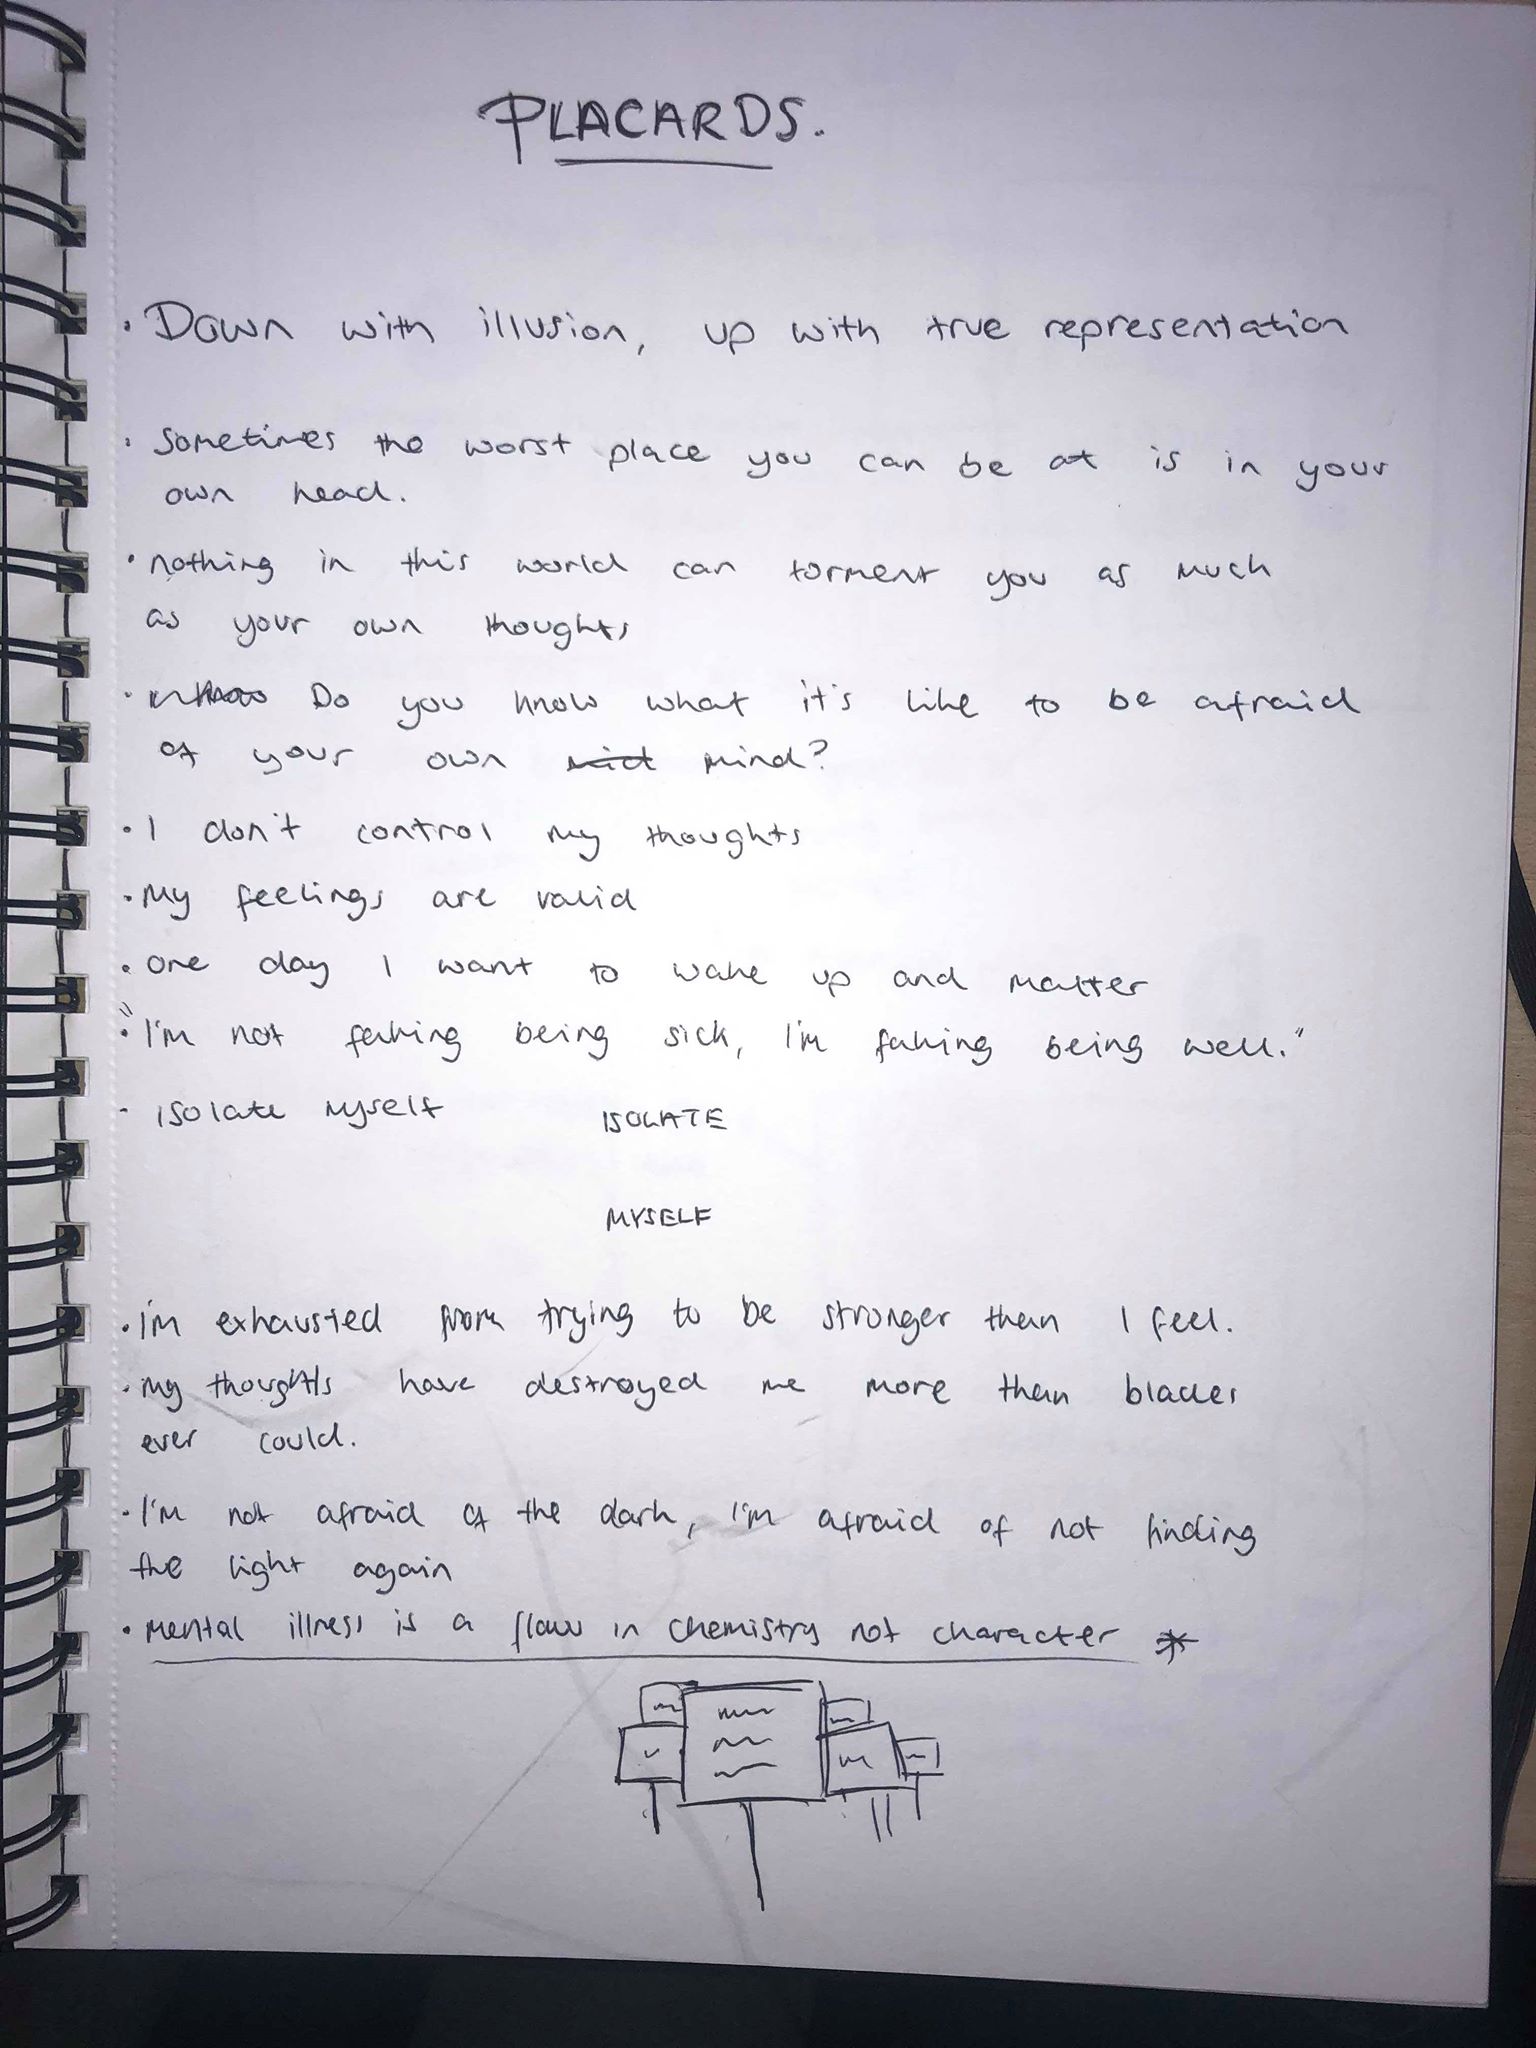 PLACARDS.
· Down with illusion, up with true representation
· Sometimes the worst place you can be at is in your
own head.
· nothing in this world can torment you as much
as your own thoughts
· Do you know what it's like to be afraid
of your own mind?
· I don't control my thoughts
· My feelings are valid
· one day I want to wake up and matter
· "I'm not faking being sick, I'm faking being well."
· isolate myself ISOLATE
MYSELF
· I'm exhausted from trying to be stronger than I feel.
· my thoughts have destroyed me more than blades
ever could.
· I'm not afraid of the dark, I'm afraid of not finding
the light again
· mental illness is a flaw in chemistry not character *